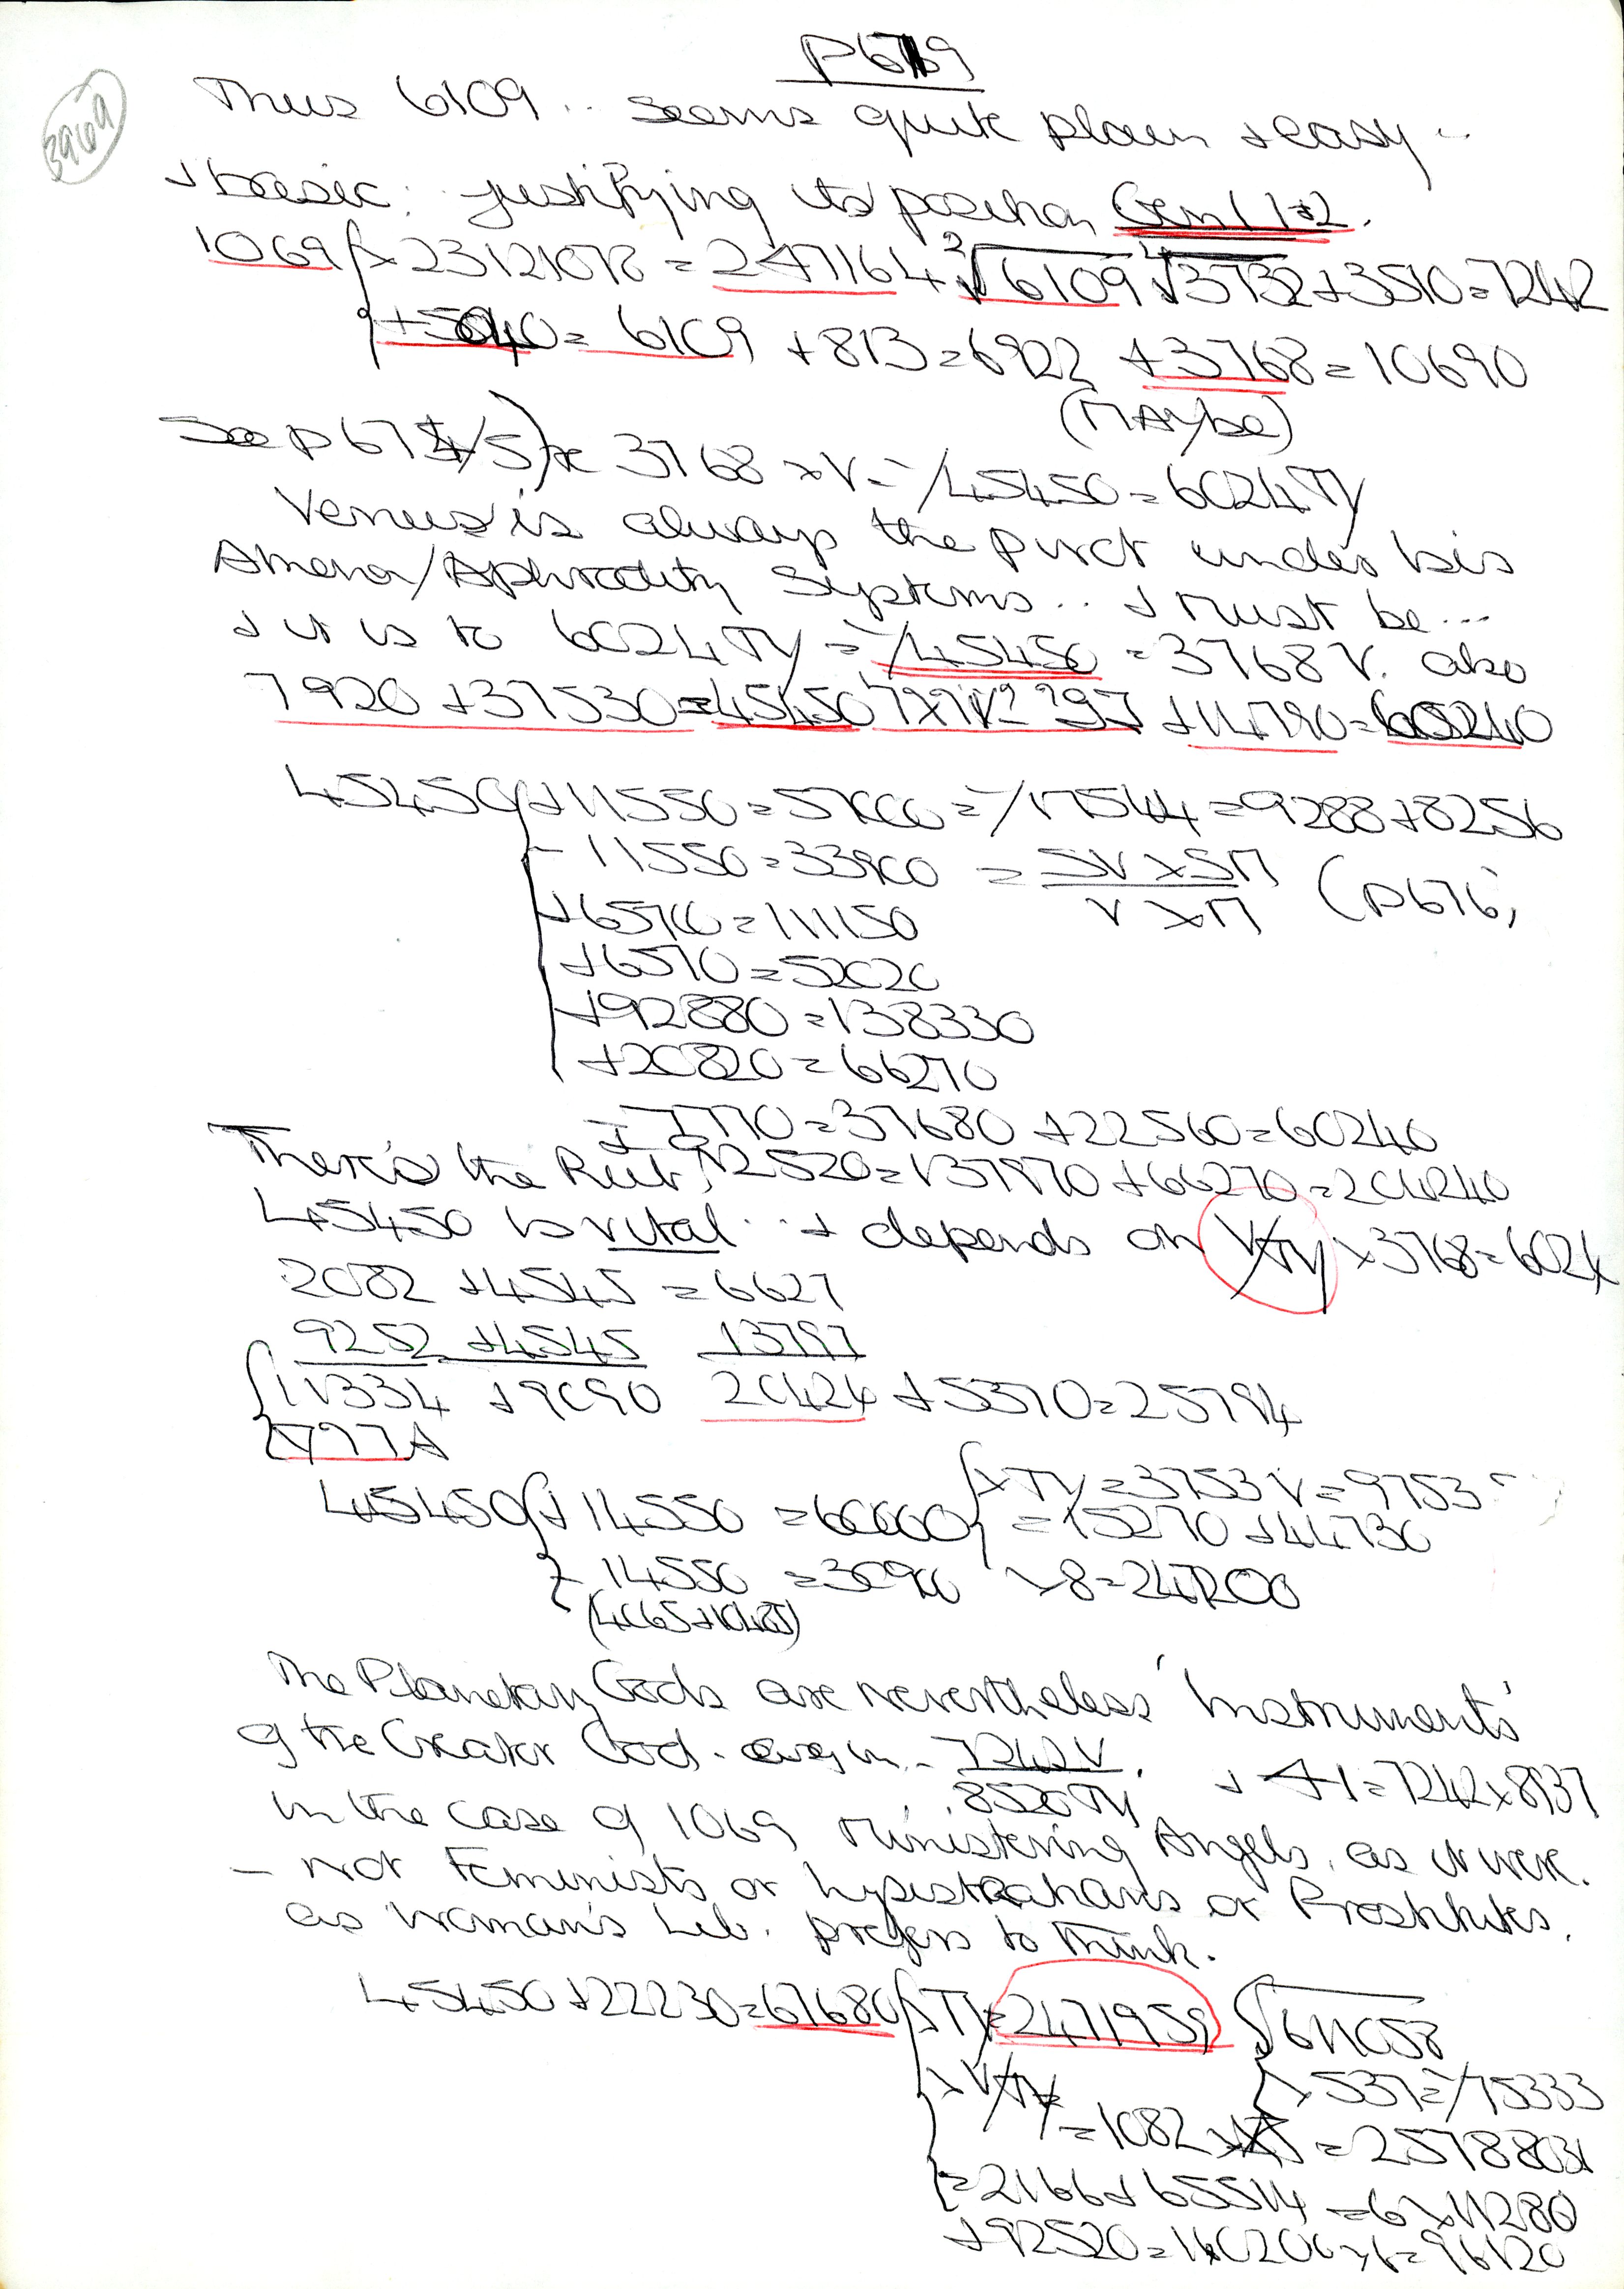 P6719
3969
Thus 6109 .. seems quite plain + easy ..
+ basic : justifying its position Gen 1 1+2.
1069 { x 23121078 = 247164 ³√6109 ⁴√3732 + 3510 = 7242
+5040 = 6109 + 813 = 6922 + 3768 = 10690
(MAybe)
See p 6714/5) x 3768 x V = -/45450 = 6024 Ty
Venus is always the pivot under his
Athena/Aphrodity Systems .. + must be ...
+ it is to 6024 Ty = -/45450 = 3768 V. also
7920 + 37530 = 45450 + 14790 = 60240
45450 { + 11550 = 57000 = -/17544 = 9288 + 8256
- 11550 = 33900 = 5V x 5M / V x M (p676;
+ 65700 = 111150
+ 6570 = 52020
+ 92880 = 138330
+ 20820 = 66270
- 7770 = 37680 + 22560 = 60240
There's the Rub, + 92520 = 137970 + 66270 = 204240
45450 is vital .. + depends on V/Ty x 3768 = 6024
2082 + 4545 = 6627
9252 + 4545 13797
{ 11334 + 9090 20424 + 5370 = 25794
45450 { + 14550 = 60000 { x Ty = 3753 V = 9753
= 15270 + 44730
- 14550 = 30900 x 8 = 247200
(4065 + 10485)
The Planetary Gods are nevertheless 'Instruments'
of the Creator God. 7242 V / 8520 Ty . + A1 = 7242 x 8937
in the case of 1069 Ministering Angels, as it were.
- not Feminists or or Prostitutes.
as Woman's Lib. prefers to think.
45450 + 22230 = 67680 { x Ty = 2471959 √611058
x V/Ty { x 537 = -/75333
= 1082 = 25788031
= 2166 + 65514 = 6 x 11280
+ 92520 = 160200 x 6 = 96120